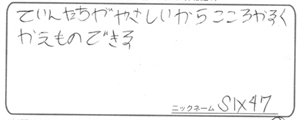 ていんたちがやさしいからこころがるく
かえものできる
ニックネーム SIX47